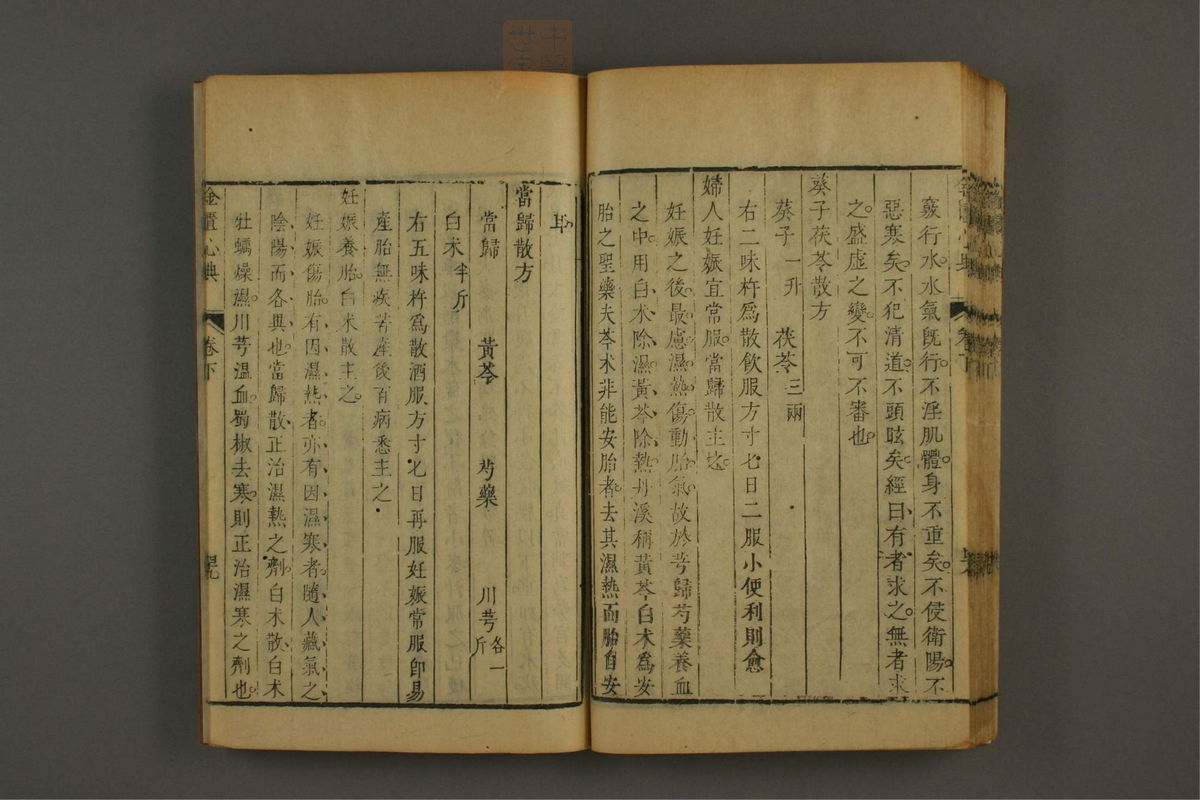 竅行水水氣既行不淫肌體身不重矣不使衛陽不
惡寒矣不犯清道不頭眩矣經曰有者求之無者求
之盛虛之變不可不審也
葵子茯苓散方
葵子一升 茯苓三兩
右二味杵爲散飲服方寸匕日二服小便利則愈
婦人妊娠宜常服當歸散主之
妊娠之後最慮濕熱傷動胎氣故於芎歸芍藥養血
之中用白朮除濕黃芩除熱丹溪稱黃芩白朮爲安
胎之聖藥夫芩朮非能安胎者去其濕熱而胎自安
耳
當歸散方
當歸 黃芩 芍藥 川芎各一斤
白朮半斤
右五味杵爲散酒服方寸匕日再服妊娠常服即易
產胎無疾苦產後百病悉主之
妊娠養胎白朮散主之
妊娠傷胎有因濕熱者亦有因濕寒者隨人藏氣之
陰陽而各異也當歸散正治濕熱之劑白朮散白朮
牡蠣燥濕川芎溫血蜀椒去寒則正治濕寒之劑也
金匱心典 卷下